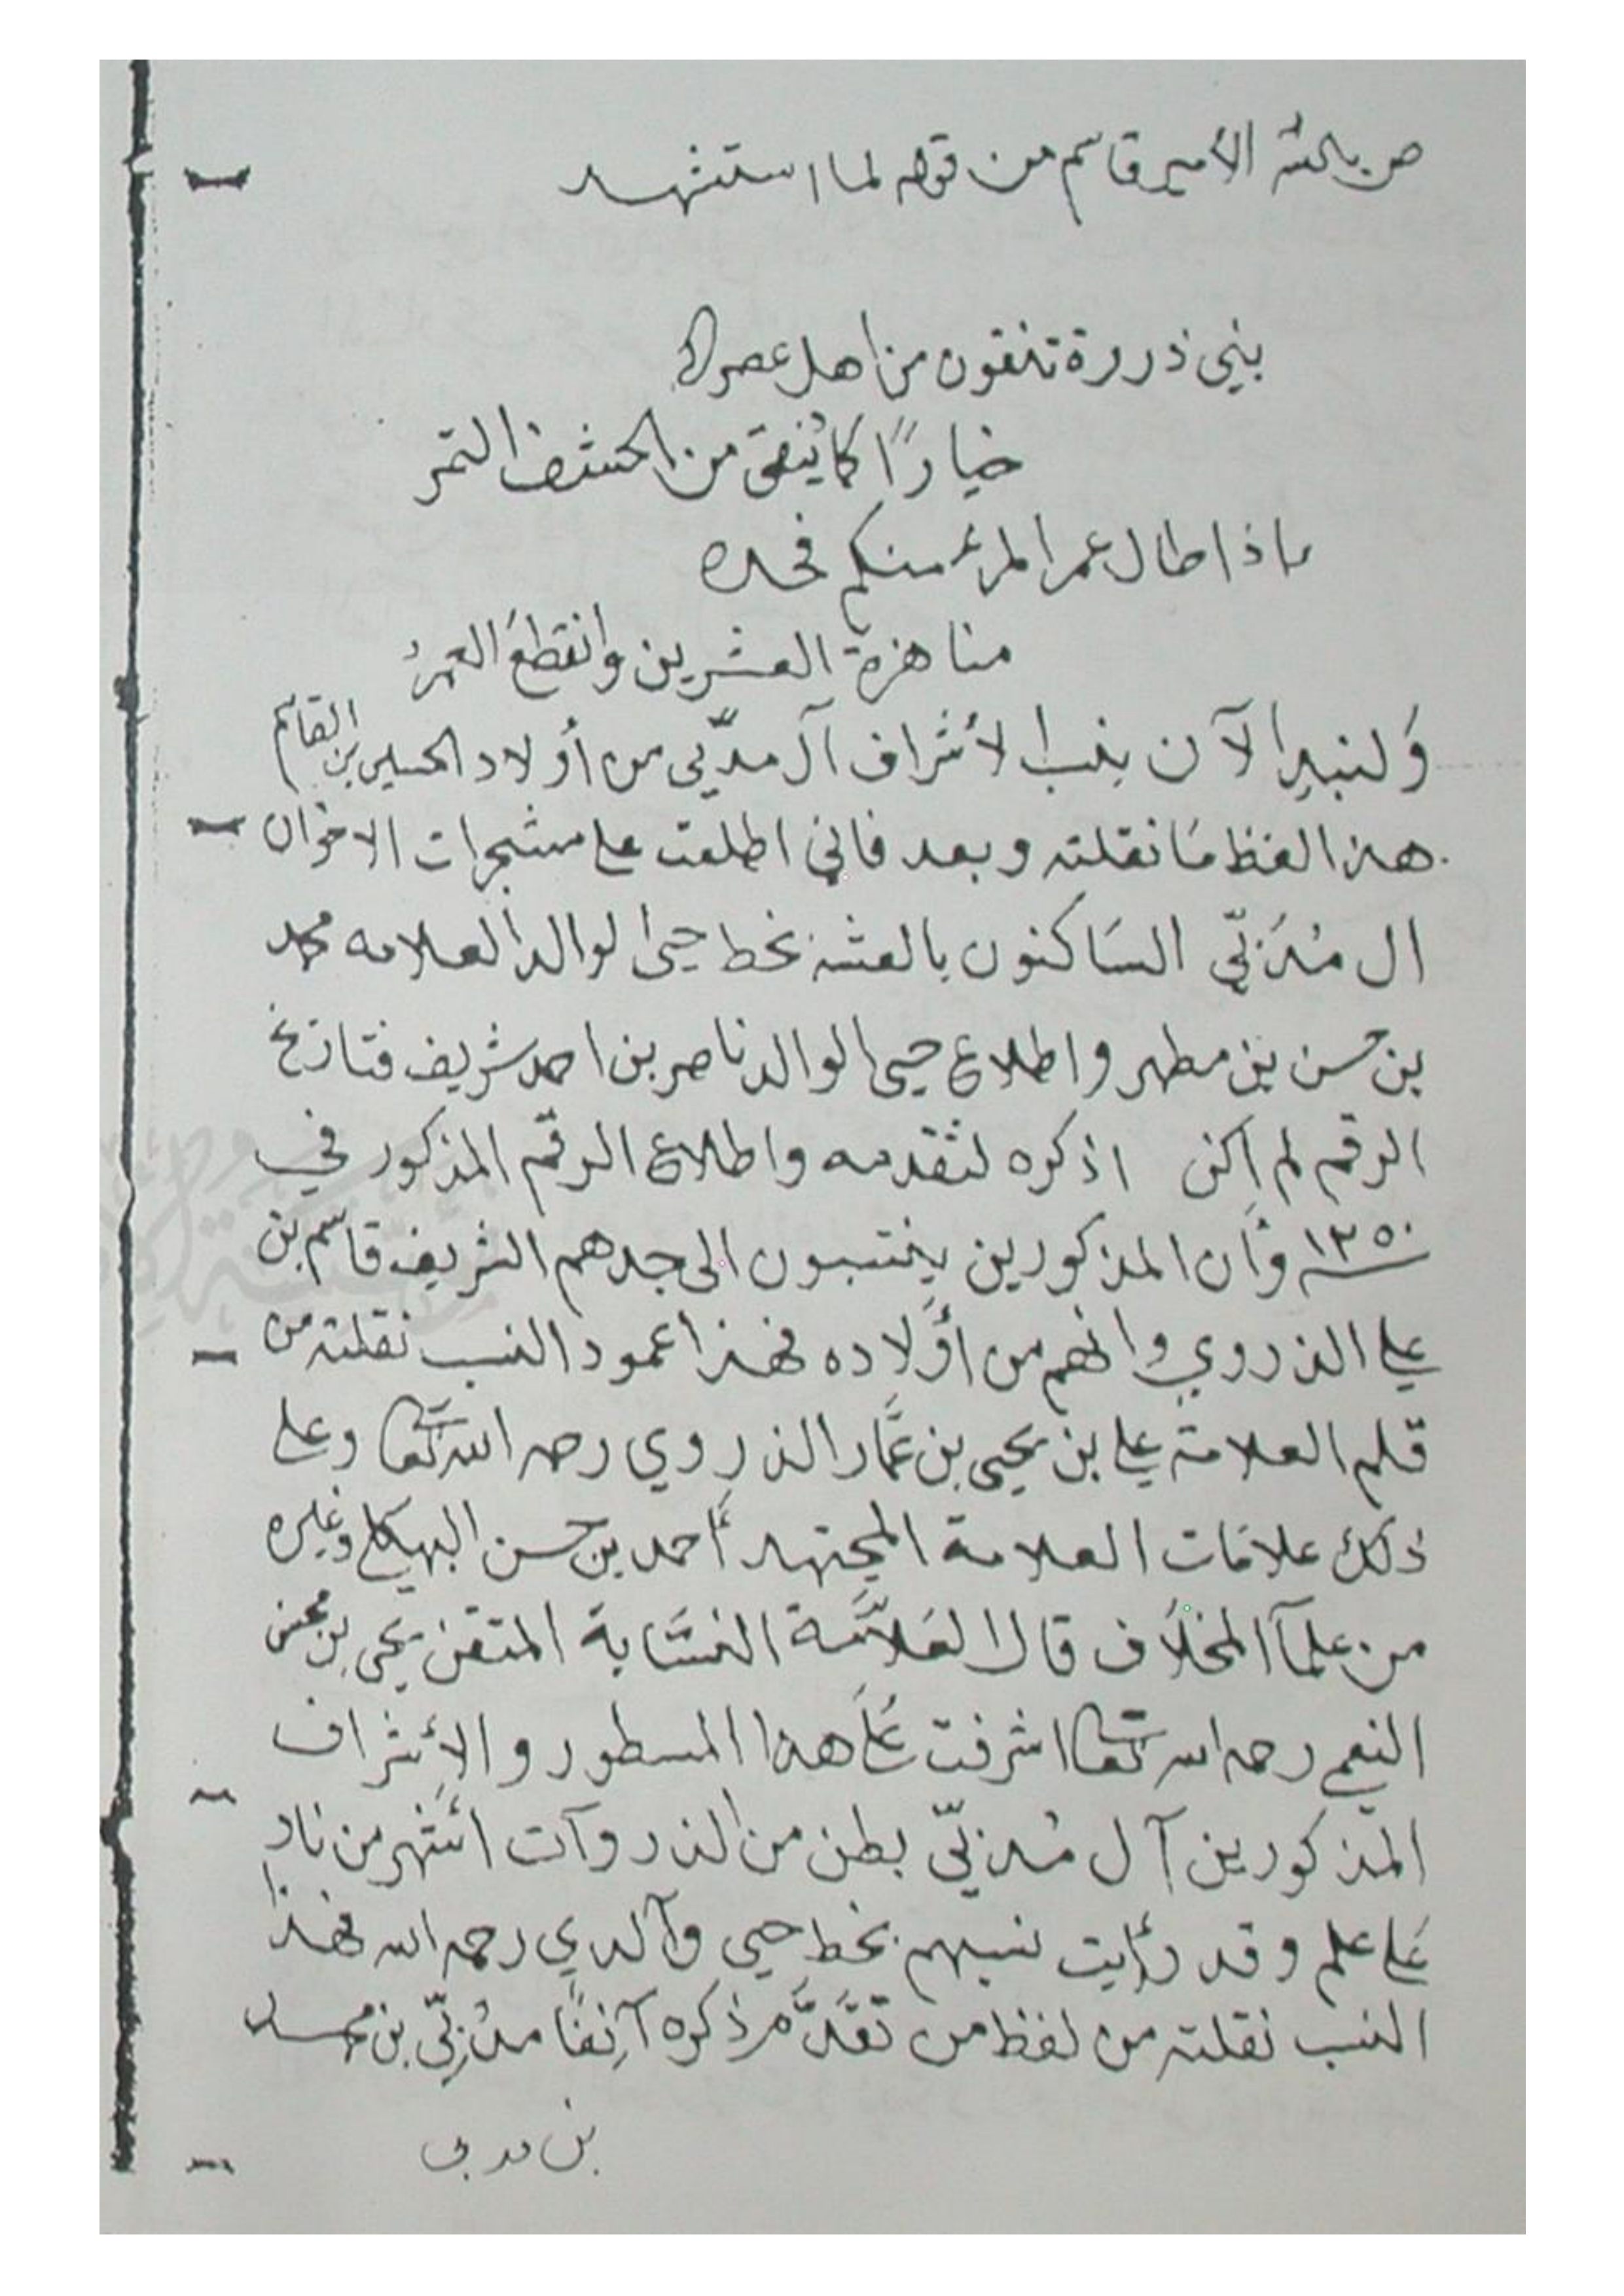 الأمير قاسم من قوله لما استشهد
بني ذروة تنقون من اهل عصركم
خيارًا كما يُنقى من الحشف التمر
ماذا طال عمر المرء منكم فحده
مناهزة العشرين وانقطعَ العمرُ
وَلنبدا الآن بنسب الأشراف آل مدبّي من أولاد الحسين بن القاسم
هذا لفظ مَا نقلته وبعد فاني اطلعت على مشجرات الاخوان
ال مُدَبّي السَاكنون بالعشه بخط حيّ الوالد العلامه محمد
بن حسن بن مطهر واطلاع حيى الوالد ناصر بن احمد شريف فتاريخ
الرقم لم اكن اذكره لتقدمه واطلاع الرقم المذكور في
١٣٥٠ وَأن المذكورين ينتسبون الى جدهم الشريف قاسم بن
علي الذروي وانهم من أوَلاده فهذا عمود النسب نقلته من
قلم العلامة علي بن يحيى بن عمَّار الذروي رحمه الله تعالى وعلى
ذلك علامَات العلامة المجتهد أحمد بن حسن البهكلي وغيره
من علمآ المخلَاف قال العَلَّامَة النسَّابة المتقن يحيى بن محسن
النعمي رحمه الله تعالى اشرفت عَلَى هذا المسطور والأَشراف
المذكورين آل مُدبّي بطن من الذروآت اشَهر من نار
عَلى علم وقد رَأيت نسبهم بخط حيى وَآلدي رحمه الله فهذا
النسب نقلته من لفظ من تقَدَّم ذكره آنِفًا مدُبّي بن محمد
بن مدبى